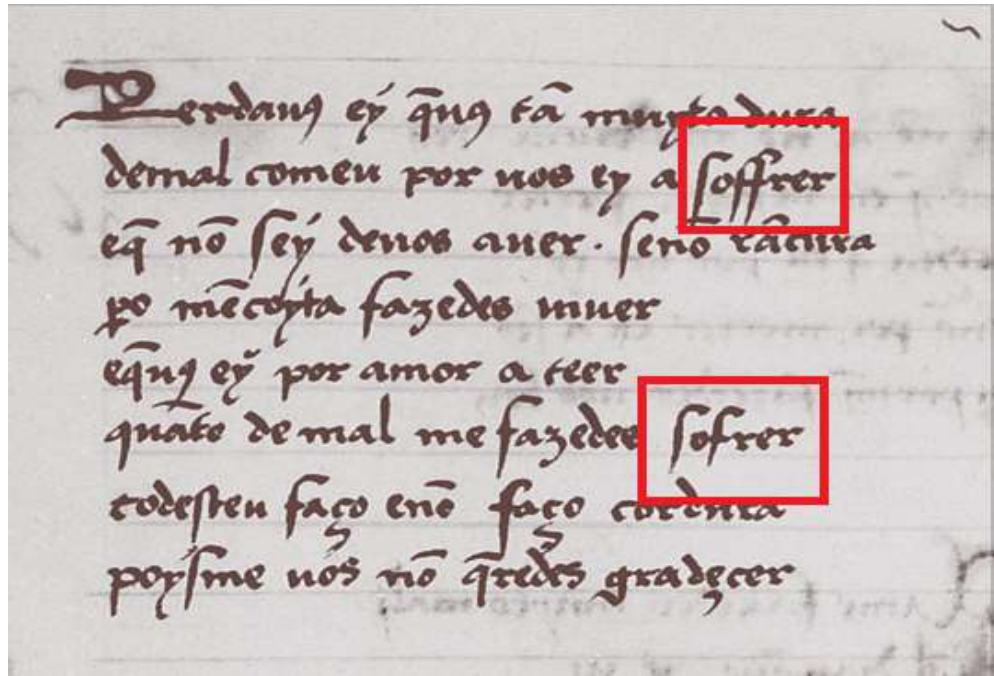 Perdauꝯ ey q̃uꝯ tã muyto dura
demal comeu por uos ey a soffrer
eq̃ nõ sey deuos auer · senõ rãcura
ꝑo mẽcoyta fazedes uiuer
eq̃uꝯ ey por amor a teer
quãto de mal me fazedes sofrer
todesteu faço enõ faço cordura
poysme uos nõ q̃redes gradeçer